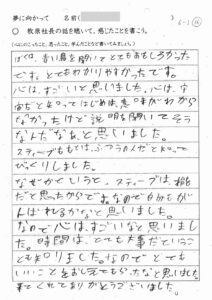 夢に向かって 名前( )
6-1 16
○ 牧原社長の話を聴いて、感じたことを書こう。
(心にのこったこと、思ったこと、学んだことなど書いてみましょう。)
ぼくは、青い鳥を聞いてとてもおもしろかった
です。とてもわかりやすかったです。
心は、すごいと思いました。心は、う
ちゅうだと知ってはじめは、意味がわから
なかったけど説明も聞いてそう
なんだなぁと思いました。
スティーブももとは、ふつうの人だと知って
びっくりしました。
なぜかというと、スティーブは、
だと思ったからです。なので自分もがん
ばれるかなと思いました。
なので心は、すごいなと思いまし
た。時間は、とても大事だということ
とも知りました。なのでとても
いいことをおしえてもらったなと思いました。
きてくれてありがとうございました。